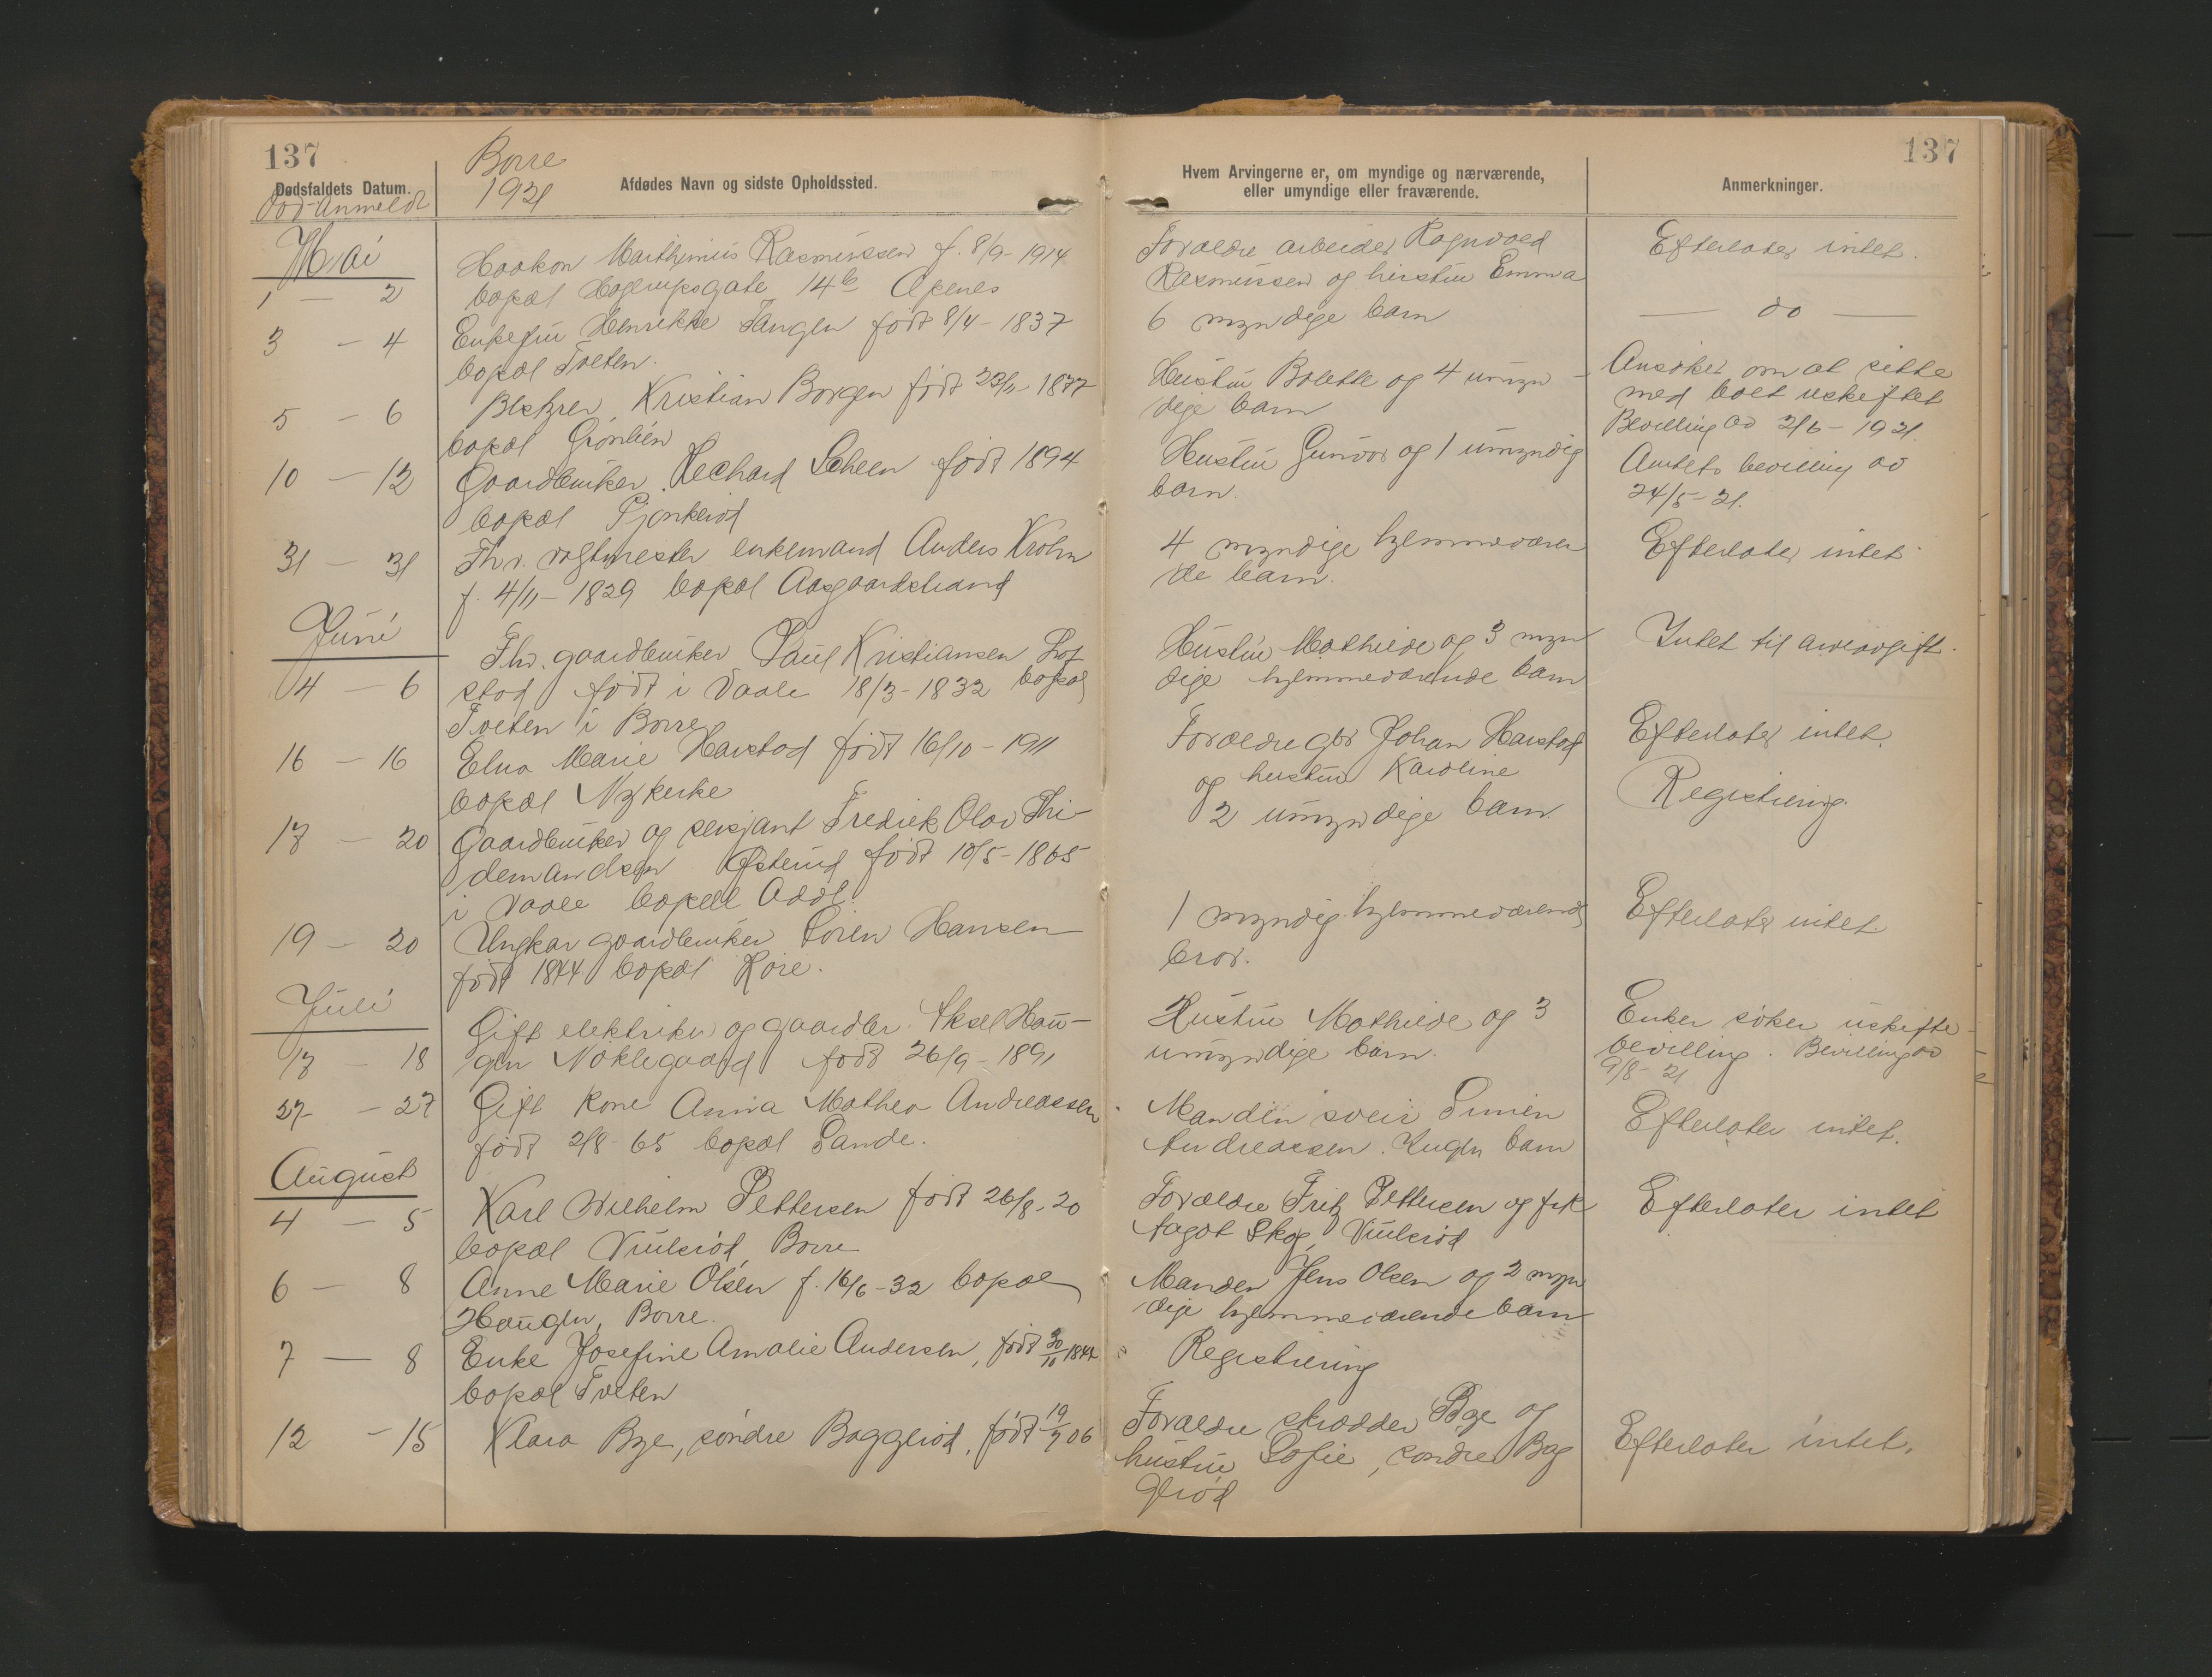 137
Borre
1921
Dødsfaldets Datum.
Død-Anmeldt
Afdødes Navn og sidste Opholdssted.
Hvem Arvingerne er, om myndige og nærværende,
eller umyndige eller fraværende.
Anmerkninger.
137
Mai
1 — 2
Haakon Marthinius Rasmussen f. 8/9-1914
bopæl 14b Apenes
Forældre arbeider Ragnvald
Rasmussen og hustru Emma
Efterlater intet.
3 — 4
Enkefru Henrikke Tangen født 8/4-1837
bopæl Tveten.
6 myndige barn
— do —
5 — 6
Kristian Borgen født 23/11-1877
bopæl Grønlien
Hustru Bolette og 4 umyn-
dige barn
Ansøker om at sitte
med boet uskiftet
Bevilling av 2/6-1921.
10 — 12
Gaardbruker Rechard Scheen født 1894
bopæl
Hustru Gunvor og 1 umyndig
barn.
Amtets bevilling av
24/5-21.
31 — 31
Fhv. vagtmester enkemand Anders Krohn
f. 4/11-1829 bopæl Aasgaardstrand
4 myndige hjemmeværen
de barn.
Efterlater intet.
Juni
4 — 6
Fhv. gaardbruker Paul Kristiansen Lof
stad født i Vaale 18/3-1832 bopæl
Tveten i Borre
Hustru Mathilde og 3 myn
dige hjemmeværende barn
Intet til arveavgift.
16 — 16
Elna Marie Harstad født 16/10-1911
bopæl Nykirke
Forældre gbr Johan Harstad
og hustru Karoline
Efterlater intet.
17 — 20
Gaardbruker og sersjant Fredrik Olav Thi-
demandsen Østerud født 10/5-1865
i Vaale bopæl Adal
2 umyndige barn.
Registrering.
19 — 20
Ungkar gaardbruker Søren Hansen
født 1844 bopæl Røre.
1 myndig hjemmeværende
bror.
Efterlater intet.
Juli
17 — 18
Gift elektriker og gaardbr. Aksel Hau-
gen Nøklegaard født 26/9-1891
Hustru Mathilde og 3
umyndige barn.
Enken søker uskifte-
bevilling. Bevilling av
9/8-21
27 — 27
Gift kone Anna Mathea Andreassen
født 2/8 65 bopæl Sande.
Manden Simen
Andreassen. Ingen barn
Efterlater intet.
August
4 — 5
Karl Vilhelm Pettersen født 26/8-20
bopæl Viulsrød Borre
Forældre Fritz Pettersen og frk
Aagot Skog, Viulsrød
Efterlater intet
6 — 8
Anne Marie Olsen f. 16/6-32 bopæl
Haugen, Borre.
Manden Jens Olsen og 2 myn
dige hjemmeværende barn
7 — 8
Enke Josefine Amalie Andersen, født 30/10 1844
bopæl Tveten
Registrering
12 — 15
Klara Bye, søndre Baggerød, født 19/7 06
Forældre skrædder Bye og
hustru Sofie, søndre Bag
gerød
Efterlater intet.